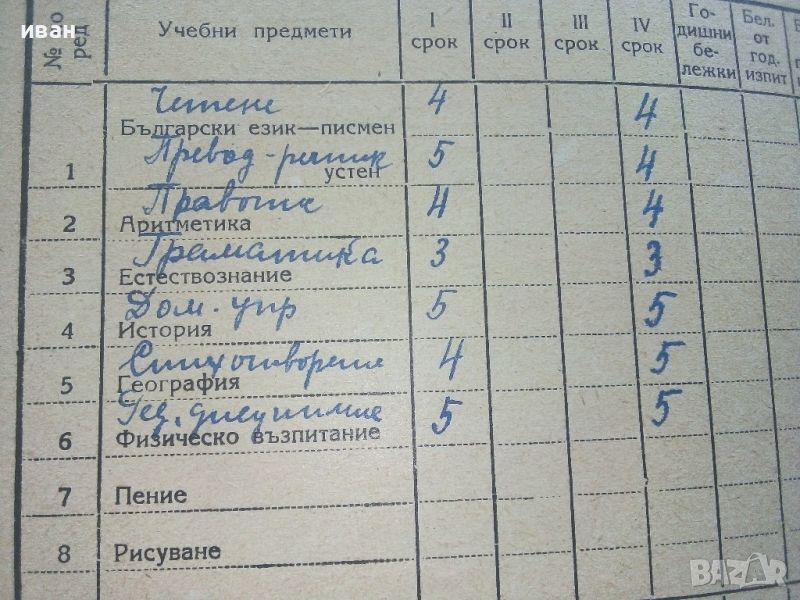 иван
№ по ред Учебни предмети I срок II срок III срок IV срок Годишни бележки Бел. от год. изпит
Четене 4 4
Български език—писмен
Превод - 5 4
1 устен
Правопис 4 4
2 Аритметика
Граматика 3 3
3 Естествознание
Дом. упр 5 5
4 История
Стихотворения 4 5
5 География
5 5
6 Физическо възпитание
7 Пение
8 Рисуване
BAZAR